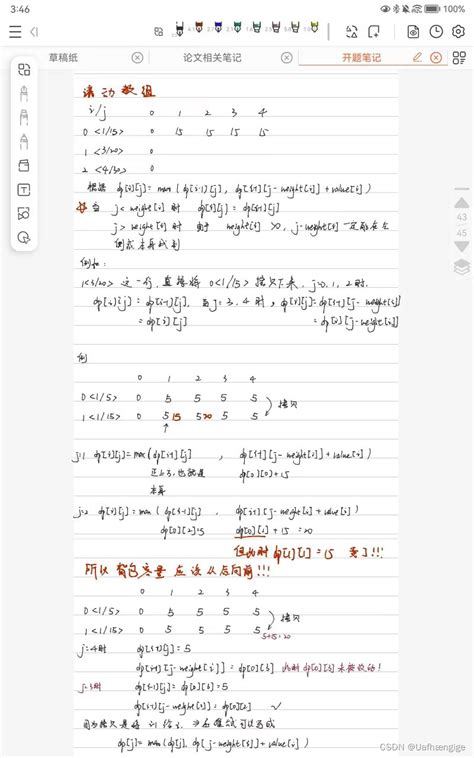 3:46
100%
草稿纸
论文相关笔记
开题笔记
滚动数组
i/j 0 1 2 3 4
0 <1/15> 0 15 15 15 15
1 <3/20> 0
2 <4/30> 0
根据 dp[i][j] = max(dp[i-1][j], dp[i-1][j-weight[i]]+value[i])
当 j<weight[i] 时 dp[i][j] = dp[i-1][j]
j>weight[i] 时 由于 weight[i] >0, j-weight[i] 一定能在左
例如:
1<3/20> 这一行, 直接将 0<1/15> 拷贝下来, j=0,1,2时,
dp[i][j] = dp[i-1][j], 当j=3,4时, dp[i][j]=dp[i-1][j-weight[i]]
=dp[i][j] =dp[i][j-weight[i]]
例
0 1 2 3 4
0 <1/5> 0 5 5 5 5
拷贝
1 <1/15> 0 5 15 5 20 5 5
j=1 dp[i][j]=max(dp[i-1][j] , dp[i-1][j-weight[i]]+value[i])
dp[0][0]+15
本身
j=2 dp[i][j] = max(dp[i-1][j] , dp[i-1][j-weight[i]+value[i])
dp[0][2]=5 dp[0][1]+15 =20
但此时 dp[1][1]=15 变了!!!
所以背包容量应该从后向前!!!
0 1 2 3 4
0 <1/5> 0 5 5 5 5
拷贝
1 <1/15> 0 5 5 5 5
5+15=20
j=4时 dp[i-1][j]=5
dp[i-1][j-weight[i]] = dp[0][3] 此时dp[0][3]未被改动!
j=3时 dp[i-1][j]=dp[0][3]=5
dp[i-1][j-weight[i]] = dp[0][2] ✓
dp[j]=max(dp[j], dp[j-weight[i]]+value[i])
43
45
CSDN @Uafhængige